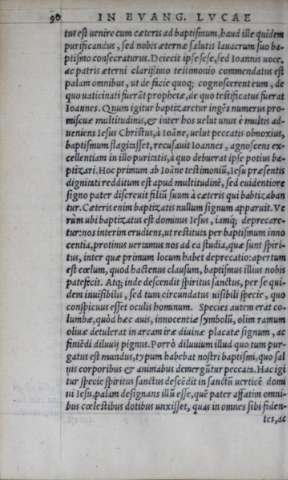 90 IN EVANG. LVCAE
tus est uenire cum cæteris ad baptismum, haud ille quidem
purificandus, sed nobis æternæ salutis lauacrum suo ba-
ptismo consecraturus. Deiecit ipse sese, sed Ioannis uoce,
ac patris æterni clarissimo testimonio commendatus est
palam omnibus, ut & sicię quoq; cognoscerent eum, de
quo uaticinati fuerāt prophetæ, de quo testificatus fuerat
Ioannes. Quum igitur baptizaretur ingēs numerus pro-
miscuæ multitudinis, & inter hos uelut unus è multis ad-
ueniens Iesus Christus, à Ioāne, uelut peccatis obnoxius,
baptismum flagitasset, recusauit Ioannes, agnoscens ex-
cellentiam in illo puritatis, à quo debuerat ipse potius ba-
ptizari. Hoc primum ab Ioāne testimoniū, Iesu præsentis
dignitati redditum est apud multitudinē, sed euidentiore
signo pater discreuit filiū suum à cæteris qui baptizaban
tur. Cæteris enim baptizatis nullum signum apparuit. Ve
rùm ubi baptizatus est dominus Iesus, iamq; deprecare-
tur: nos interim erudiens, ut restituti per baptismum inno
centia, protinus uertamus nos ad ea studia, quæ sunt spiri-
tus, inter quæ primum locum habet deprecatio: apertum
est cœlum, quod hactenus clausum, baptismus illius nobis
patefecit. Atq; inde descendit spiritus sanctus, per se qui-
dem inuisibilis, sed tum circundatus uisibili specie, quo
conspicuus esset oculis hominum. Species autem erat co-
lumbæ, quòd hæc auis, innocentiæ symbolū, olim ramum
oliuæ detulerat in arcam iræ diuinæ placatæ signum, ac
finiēdi diluuij pignus. Porrò diluuium illud quo tum pur-
gatus est mundus, typum habebat nostri baptismi, quo sal
uis corporibus & animabus demergūtur peccata. Hac igi
tur specie spiritus sanctus descēdit in sanctū uerticē domi
ni Iesu, palam designans illū esse, quē pater affatim omni-
bus cœlestibus dotibus unxisset, quas in omnes sibi fiden-
tes, ac